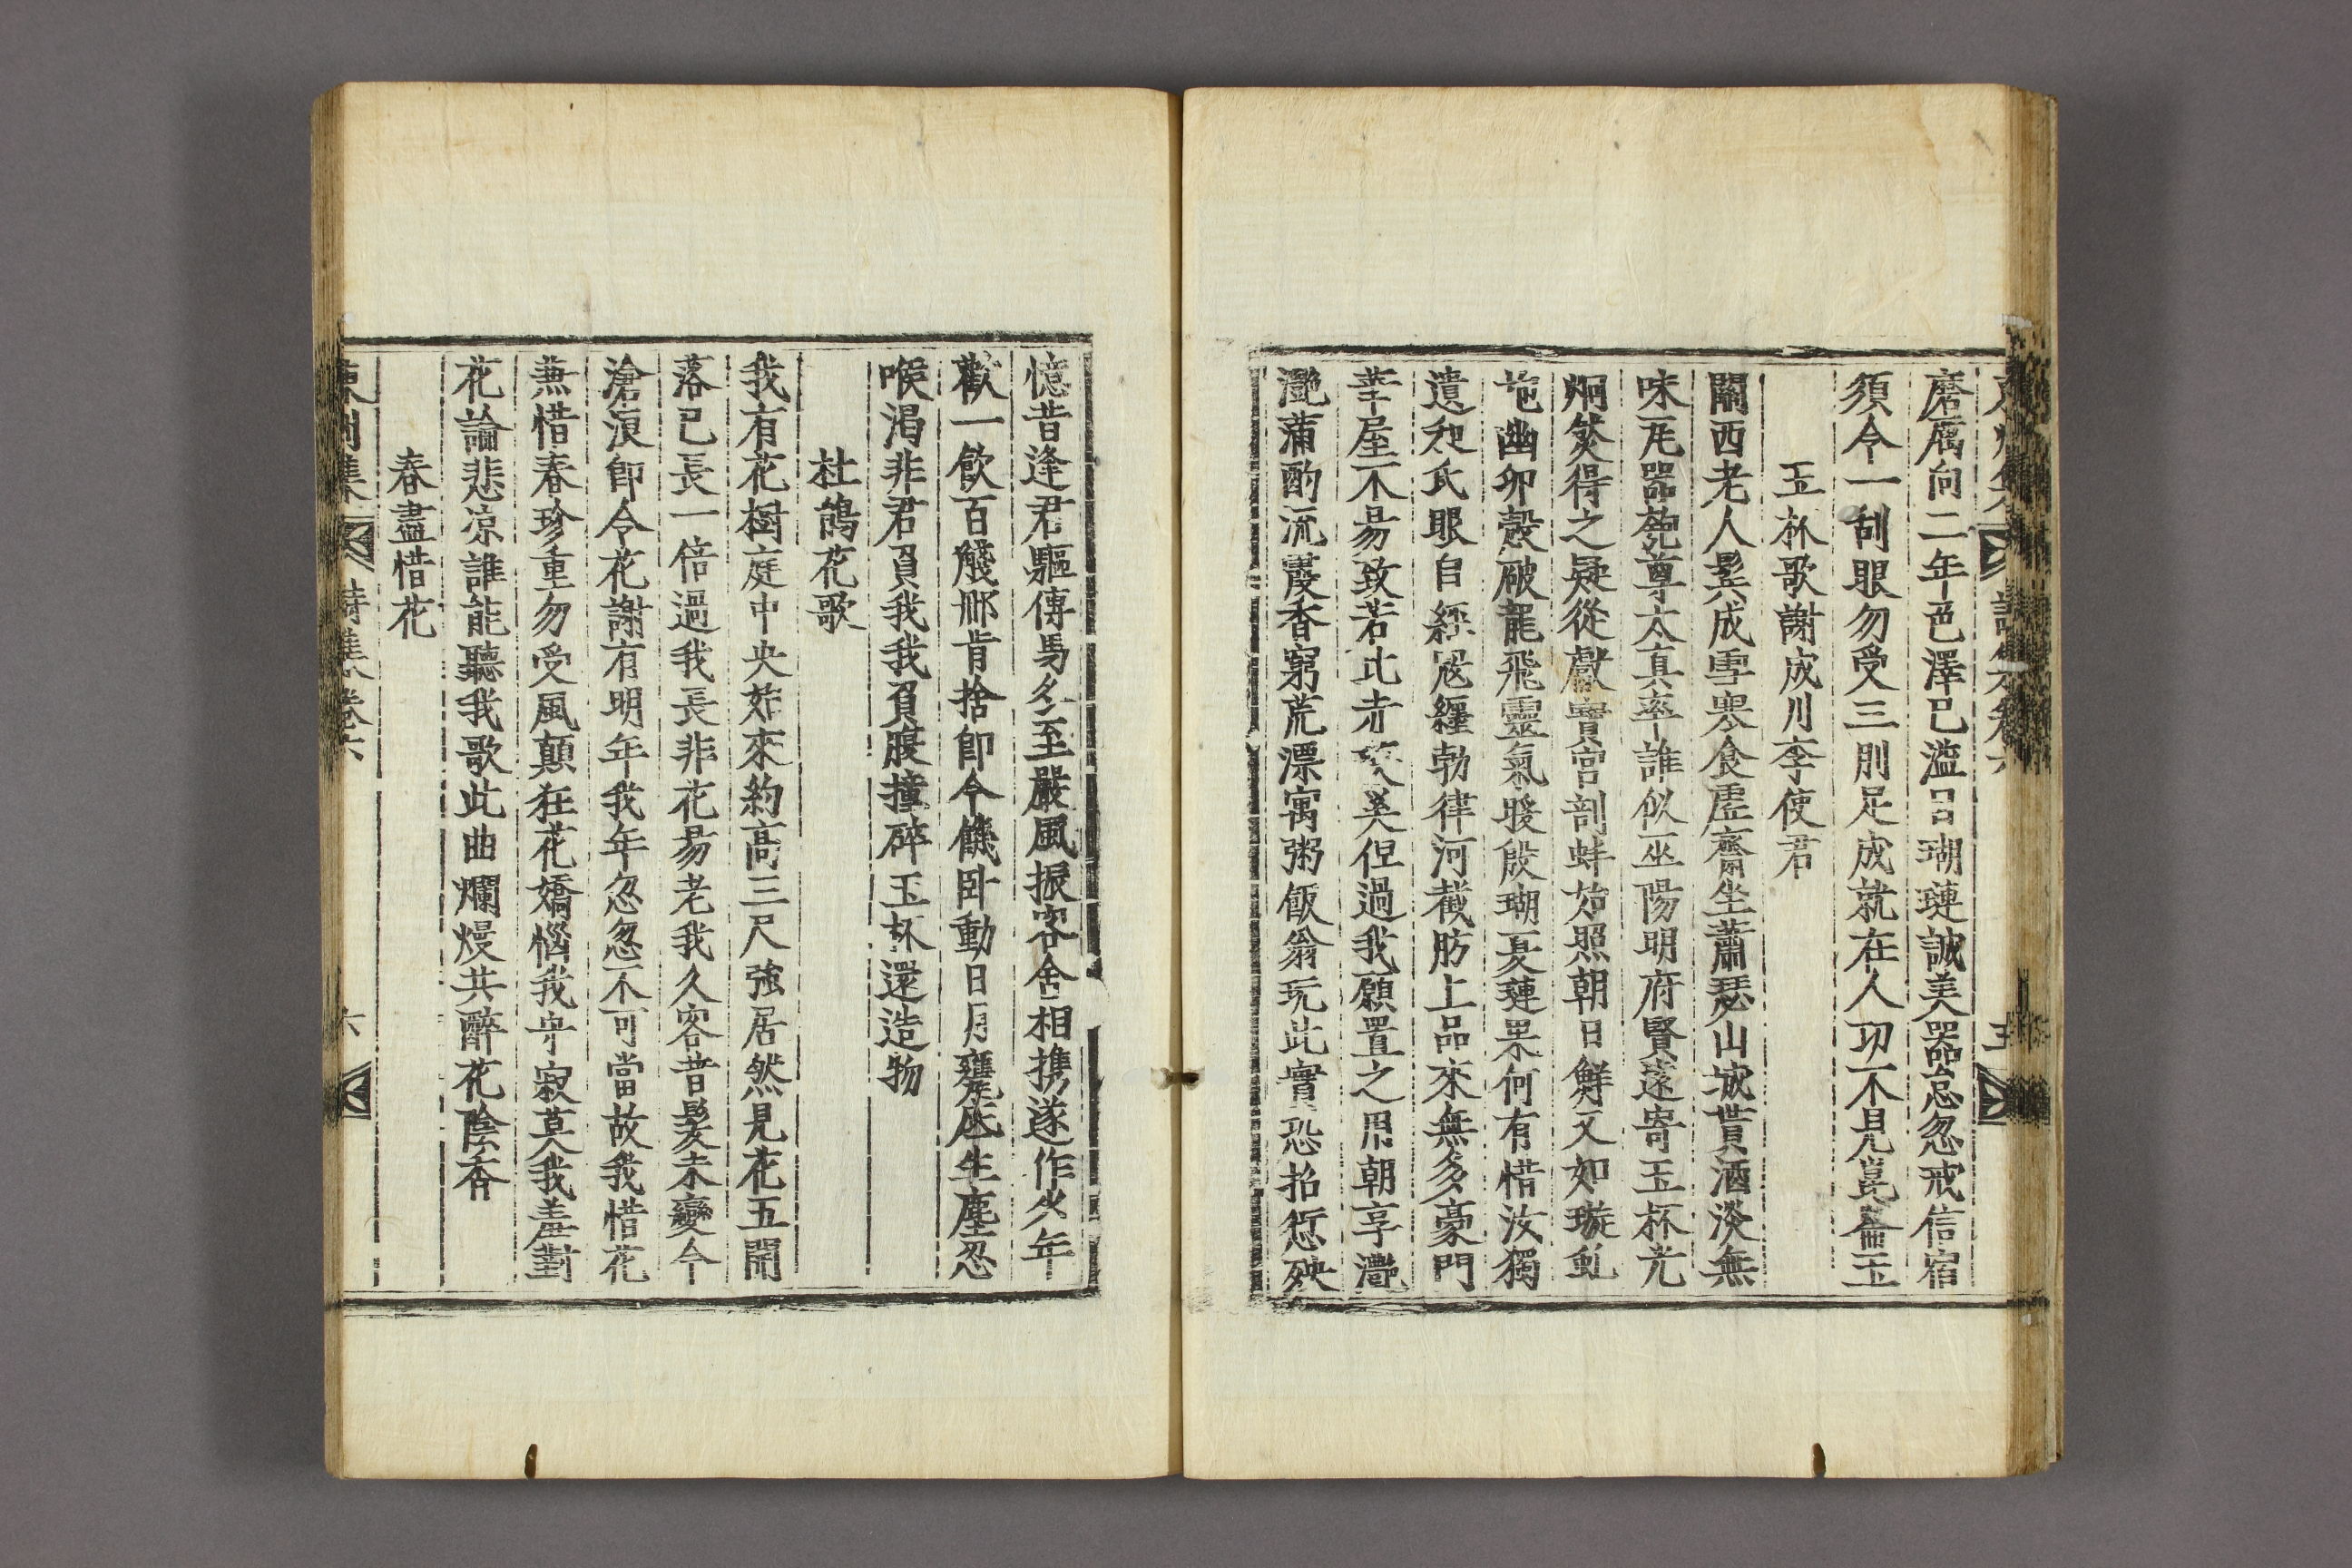 磨厲向二年色澤已溢呂瑚璉誠美器怠忽戒信宿
須令一刮眼勿受三刖足成就在人功不見崑崙玉
玉杯歌謝成川李使君
關西老人鬂成雪寒食虛齋坐蕭瑟山城貰酒淡無
味瓦器匏尊太真率誰似巫陽明府賢遠寄玉杯光
炯然得之疑從獻寶宮剖蚌始照朝日鮮又如璇虬
咆幽卵㱿破龍飛靈氣暖殷瑚夏璉果何有惜汝獨
遺和氏眼自經冦纏勃律河截肪上品來無多豪門
華屋不易致若比赤英但過我願置之用朝享灔
灔蒲酌流霞香窮荒漂寓粥飯翁玩此實恐招愆殃
憶昔逢君驅傳馬冬至嚴風振客舍相携遂作少年
歡一飮百觴那肯捨即今饑卧動日月甕底生塵忍
喉渴非君負我我負腹撞碎玉杯還造物
杜鵑花歌
我有花樹庭中央始來約高三尺強居然見花五開
落已長一倍過我長非花易老我久客昔髮未變今
滄浪即今花謝有明年我年忽忽不可當故我惜花
兼惜春珍重勿受風顛狂花嬌惱我守寂莫我羞對
花論悲凉誰能聽我歌此曲爛熳共醉花陰香
春盡惜花
六